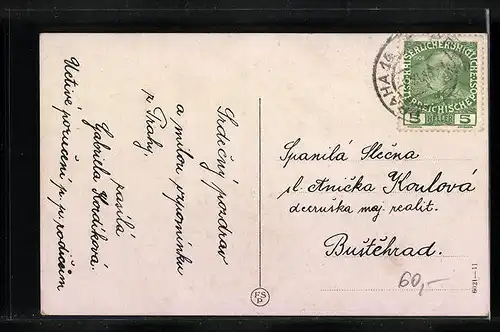 Srdečný pozdrav
a milou vzpomínku
z Prahy,
zasílá
Gabriela Horáková.
Uctivé poručení p. p. rodičům
Spanilá Slečna
sl. Anička Koulová
dceruška maj. realit.
Buštěhrad.
60,-
6021-11
PRAHA
KAISERLICHE KÖNIGLICHE
ÖSTERREICHISCHE
5 HELLER 5